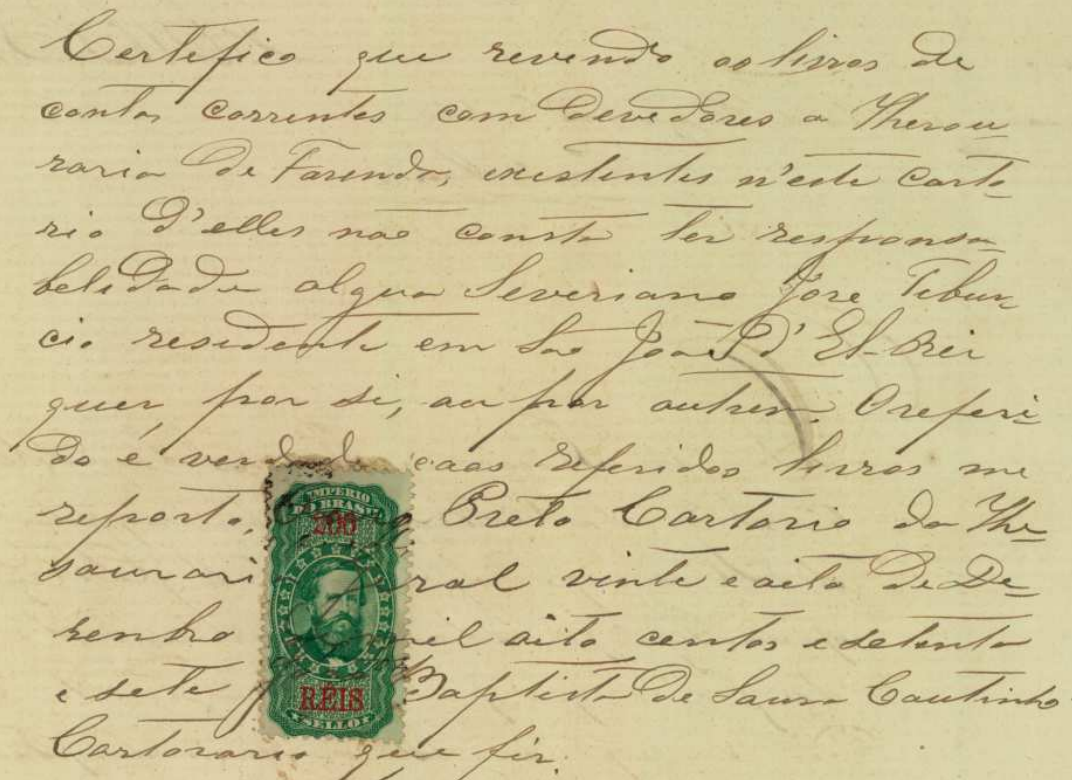 Certefico que revendo os livros de
contas correntes com devedores a Thesou
raria de Fazenda, existentes n'este carto
rio d'elles não consta ter responsa
belidade algua Severiano José Tibur
cio residente em São João d'El-Rei
quer, por si, ou por outrem. O referi
do é verdade e aos referidos livros me
reporto. Preto Cartorio da The
souraria vinte e oito de De
zembro mil oito centos e setenta
e sete Baptista de Souza Coutinho
Cartorario que fiz.
IMPERIO
DO BRASIL
200
RÉIS
SELLO